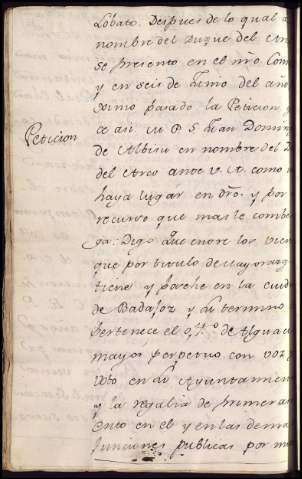 Lobato. Despues de lo qual a
nombre del Duque del Arc
se presento en el mro Con
y en seis de Henro del añ
ximo pasado la Peticion y
Peticion
ce asi M P S Juan Domin
de Albisu en nombre del D
del Arco ante v. A. como m
haya lugar en dro. y por
recurso que mas le combe
ga: Digo que entre los vien
que por titulo de Mayorazg
tiene y posehe en la ciud
de Badajoz y su termino
Pertenece el of.º de Alguac
mayor perpetuo con voz
voto en su Ayuntamien
y la regalia de primer as
ento en el y en las dema
funciones publicas por m